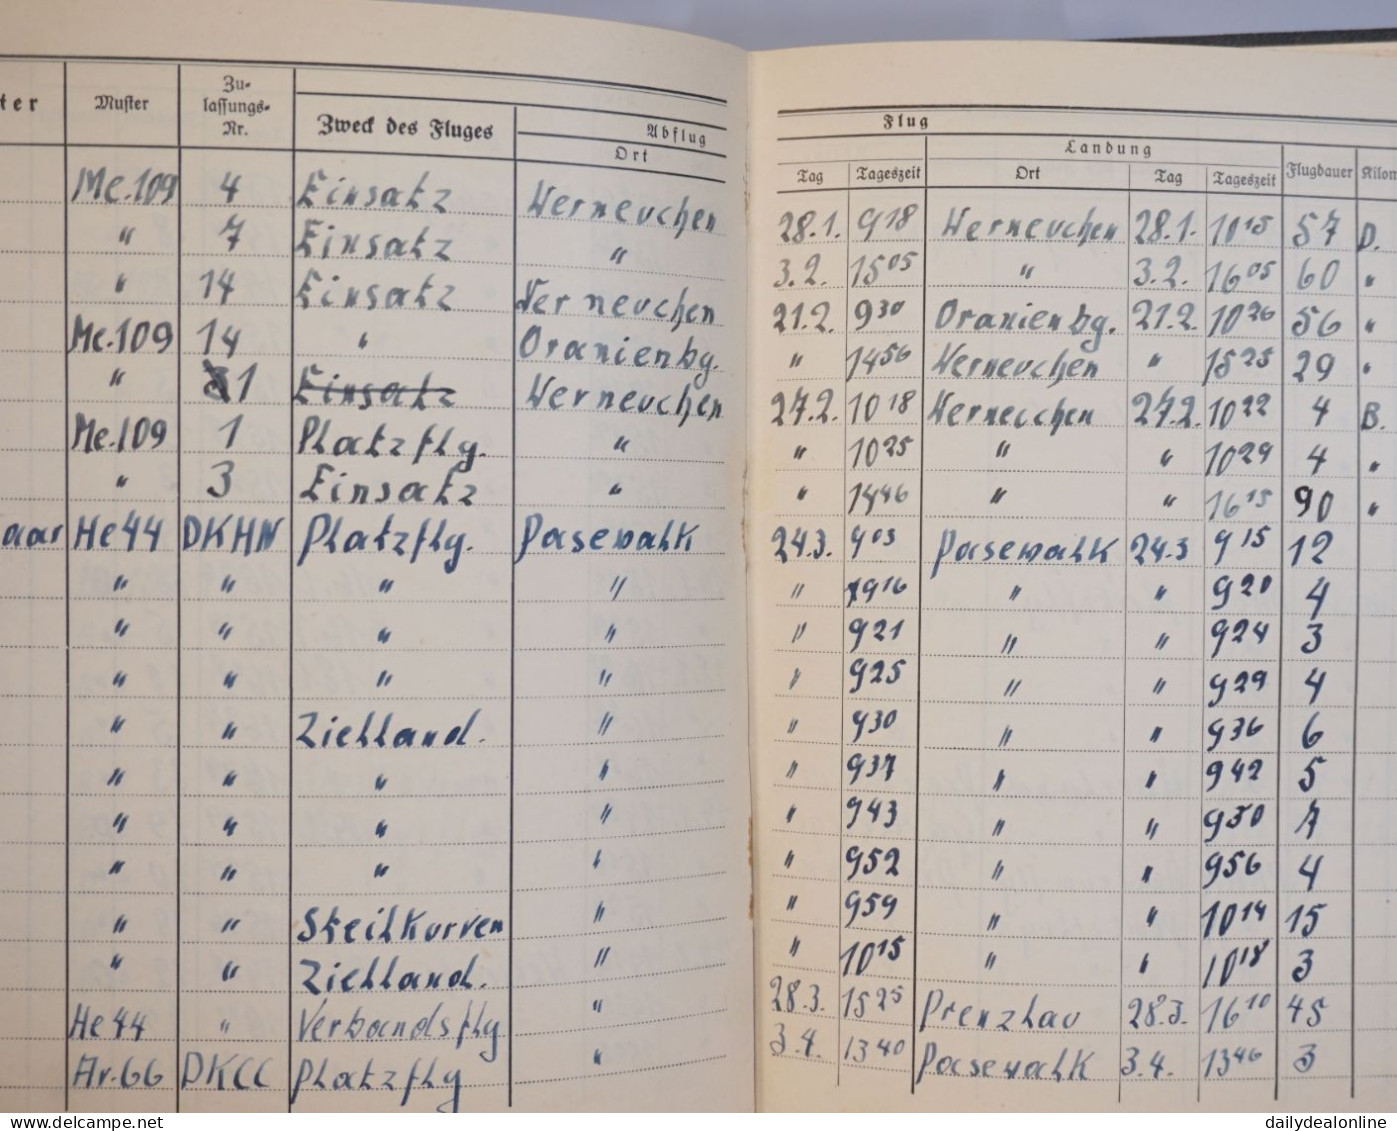 ter Muster Zu-
lassungs-
Nr. Zweck des Fluges Abflug
Ort
Flug
Landung
Tag Tageszeit Ort Tag Tageszeit Flugdauer Kilom
Me.109 4 Einsatz Werneuchen 28.1. 9 18 Werneuchen 28.1. 10 15 57 D.
" 7 Einsatz " 3.2. 15 05 " 3.2. 16 05 60 "
" 14 Einsatz Werneuchen 21.2. 9 30 Oranienbg. 21.2. 10 26 56 "
Me.109 14 " Oranienbg. " 14 56 Werneuchen " 15 25 29 "
" 1 Einsatz Werneuchen 27.2. 10 18 Werneuchen 27.2. 10 22 4 B.
Me.109 1 Platzflg. " " 10 25 " " 10 29 4 "
" 3 Einsatz " " 14 46 " " 16 15 90 "
aar He 44 DKHN Platzflg. Pasewalk 24.3. 9 03 Pasewalk 24.3 9 15 12
" " " " " 9 16 " " 9 20 4
" " " " " 9 21 " " 9 24 3
" " " " " 9 25 " " 9 29 4
" " Zielland. " " 9 30 " " 9 36 6
" " " " " 9 37 " " 9 42 5
" " " " " 9 43 " " 9 50 7
" " " " " 9 52 " " 9 56 4
" " Steilkurven " " 9 59 " " 10 14 15
" " Zielland. " " 10 15 " " 10 18 3
He 44 " Verbandsflg. " 28.3. 15 25 Prenzlau 28.3. 16 10 45
Ar.66 DKCC Platzflg " 3.4. 13 40 Pasewalk 3.4. 13 46 3
www.delcampe.net
dailydealonline